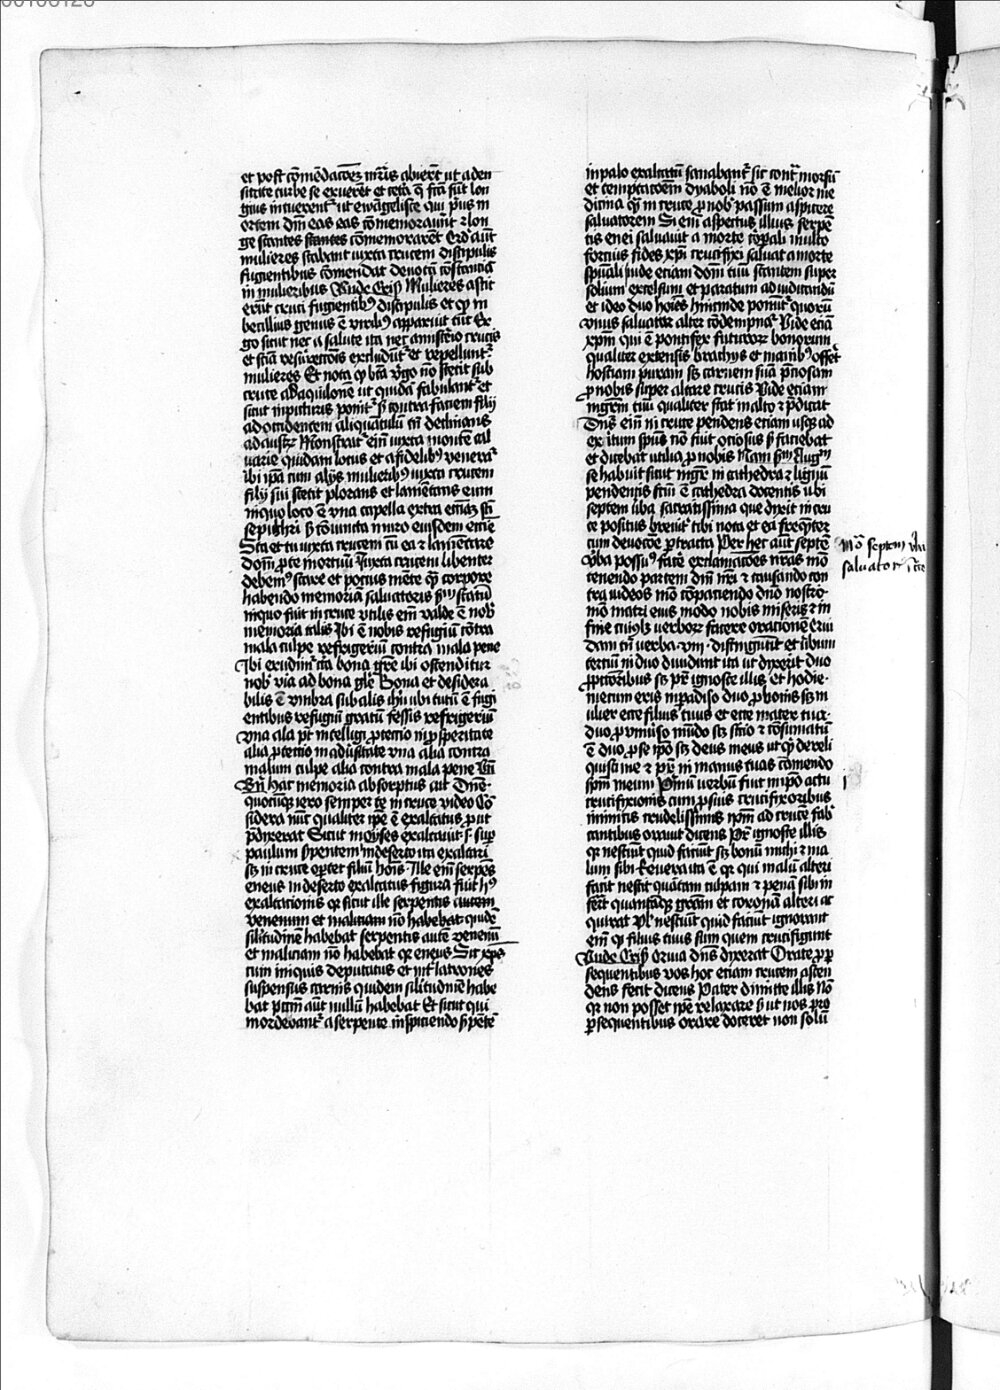 et post cōmēdacōez mr̄is abierūt ut a den
sitate turbe se exuerēt et cetā q̄ fcā sūt lon
gius intuerent᷑ ut ewāgeliste qui pͥus m
ortem dn̄i eas eas cōmemorauīt ⁊ lon
ge stantes stantes cōmemorarēt Erāt aūt
mulieres stabant iuxta crucem discipulis
fugientibus cōmendat deuotā cōstanciā
in mulieribus Vnde Crisͦ Mulieres astit
erūt cruci fugientibꝰ discipulis et qͦ im
becillius genus ē virilꝰ apparuit tūc Er
go sicut nec a salute ita nec a misterio crucis
et sc̄ia resurrectōis excludūt᷑ et repellunt᷑
mulieres Et nota qͦ bt̄a v᷑go nō stetit sub
cruce ad aquilonē ut quidā fabulant᷑ et
sicut in picturis ponit᷑ sꝫ contra faciem filij
ad occidentem aliquātulū tn̄ declinans
ad austꝝ Monstrat᷑ em̄ iuxta montē cal
uarie quidam locus et a fidelibꝰ venerat᷑
ibi ip̄a cum alijs mulieribꝰ iuxta crucem
filij sui stetit plorans et lamētans eum
in quo loco ē vna capella extra ecc̄iaꝫ sc̄i
sepulchri sꝫ cōiuncta muro eiusdem ecc̄ie
Sta et tu iuxta crucem cū ea ⁊ lamētare
dom̄ p̄ te mortuū Iuxta crucem libenter
debemꝰ stare et pocius mēte qͣꝫ corpore
habendo memoriā saluatoris scd̄m statū
in quo fuit in cruce vtilis em̄ valde ē nobͥ
memoria talis Ibi ē nobis refugiū cōtra
mala culpe refrigeriū contra mala pene
Ibi erudim᷑ cͥca bona gr̄e ibi ostenditur
nobͥ via ad bona gl̄e Bona et desidera
bilis ē vmbra sub alis ih̄u ubi tutū ē fugi
entibus refugiū gratū fessis refrigeriū
vna ala pͦt intelligi ꝓtectio in ꝓsperitate
alia ꝓtectio in aduersitate vna alia contra
malum culpe alia contra mala pene Vn̄
Bn̄ hac memoria absorptus ait Dn̄e
quociēsqꝫ iero semper te in cruce video Co
sidera nūc qualiter ip̄e ē exaltatus ꝓut
p̄dixerat Sicut moyses exaltauit s̄ suꝑ
paulum s᷑pentem in deserto ita exaltari
sꝫ in cruce oꝑtet filiū hoīs Ille em̄ serpēs
eneus in deserto exaltatus figura fuit hꝰ
exaltacionis qꝛ sicut ille serpentis autem
venenum et maliciam nō habebat quidē
silitudinē habebat serpentis autē venenū
et maliciam nō habebat qꝛ eneus Sic xp̄s
cum iniquis deputatus et int᷑ latrones
suspensus carnis quidem silitudinē habe
bat pctm̄ aūt nullū habebat Et sicut qui
mordebant᷑ a serpente inspiciendo s᷑pētē
in palo exaltatū sanabant᷑ sic cont᷑ morsū
et temptacōem dyaboli nō ē melior me
dicina qͣꝫ in cruce ꝓ nobͥ passum aspicere
saluatorem Si em̄ aspectus illius serpē
tis enei saluauit a morte corpali multo
forcius fides xp̄i crucifixi saluat a morte
spūali Inde etiam dom̄ tuū stantem super
solium excelsum et paratum ad iudicandū
et ideo duo hoīes hincinde ponūt᷑ quorū
vnus saluatur alter cōdempnat᷑ Vide etiā
xp̄m qui ē pontifex futuroꝝ bonorum
qualiter extensis brachijs et manibꝰ offert
hostiam puram sꝫ carnem suā p̄ciosam
ꝓ nobis super altare crucis Vide etiam
mgr̄em tuū qualiter stat in alto ⁊ p̄dicat
Dn̄s em̄ in cruce pendens etiam usqꝫ ad
exitum spūs nō fuit ociosus sꝫ faciebat
et dicebat utilia ꝓ nobis Nam scd̄m Augm̄
se habuit sicut mgr̄ in cathedra ⁊ lignū
pendentis sc̄m ē cathedra docentis ubi
septem v᷑ba sacratissima que dixit in cru
ce positus breuit᷑ tibi nota et ea freqͤnter
cum deuocōe ꝑtracta Per hec aūt septē
v᷑ba possumꝰ facē exclamacōes nr̄as mō
tenendo partem dn̄i nr̄i ⁊ causando con
tra iudeos mō cōpaciendo dn̄o nostro
mō matri eius modo nobis miseris ⁊ in
fine cuiuslꝫ verboꝝ facere oracionē Qui
dam tn̄ verba viii distingūt et ibium
tertiū in duo diuidunt ita ut dixerit duo
ꝓ pctōribus sꝫ pr̄ ignosce illis et hodie
mecum eris in ꝑadiso duo ꝓ bonis sꝫ m
ulier ecce filius tuus et ecce mater tua
duo ꝓ vniuerso mūdo sꝫ sicio ⁊ cōsūmatū
ē duo ꝓ se ip̄o sꝫ deus meus ut qͥd dereli
quisti me ⁊ pr̄ in manus tuas cōmendo
spm̄ meum Pͥmū verbū fuit in ip̄o actu
crucifixionis cum ꝓ suis crucifixoribus
inimicis crudelissimis ip̄m ad crucē fab
ricantibus orauit dicens Pr̄ ignosce illis
qꝛ nesciūt quid faciūt sꝫ bonū michi ⁊ ma
lum sibi Reuera ita ē qꝛ qui malū alteri
facit nescit quātam culpam ⁊ penā sibi in
fert quantāqꝫ grām et coronā alteri ac
quirat Vl̄ nesciūt quid faciūt ignorant
em̄ qͦ filius tuus sum quem crucifigunt
Vnde Crisͦ Orauia dn̄s dixerat Orate ꝓ ꝑ
sequentibus vos hoc etiam crucem ascen
dens fecit dicens Pater dimitte illis Nō
qꝛ non posset ip̄e relaxare sꝫ ut nos pro
ꝑsequentibus orare doceret non solū
Nō septem v᷑ba
saluatoris ī cͣce